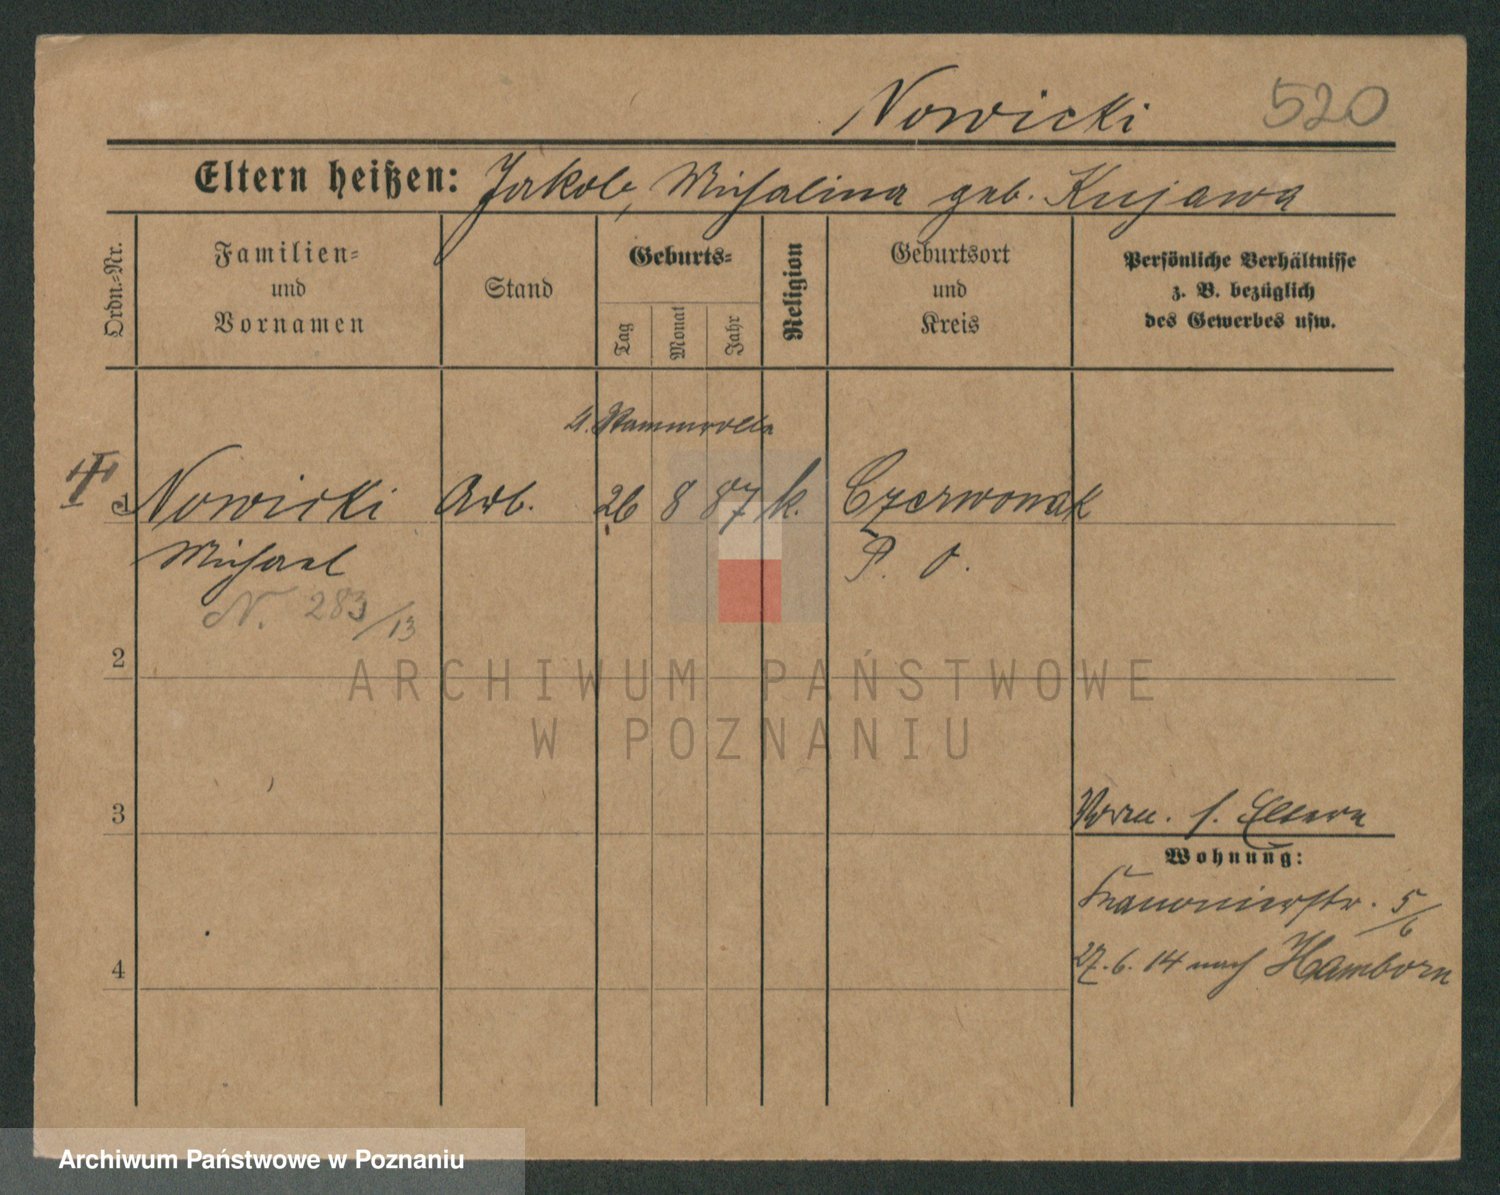 Nowicki 520
Eltern heißen: Jakob, Michalina geb. Kujawa
Ordn.-Nr.
Familien-
und
Vornamen
Stand
Geburts-
Tag
Monat
Jahr
Religion
Geburtsort
und
Kreis
Persönliche Verhältnisse
z. B. bezüglich
des Gewerbes usw.
Stammrolle
1 Nowicki Arb. 26 8 87 k. Czerwonak
Michael P. O.
N. 283/13
2
ARCHIWUM PAŃSTWOWE
W POZNANIU
3
s. Eltern
Wohnung:
Kanonierstr. 5/6
4
27.6.14 nach Hamborn
Archiwum Państwowe w Poznaniu